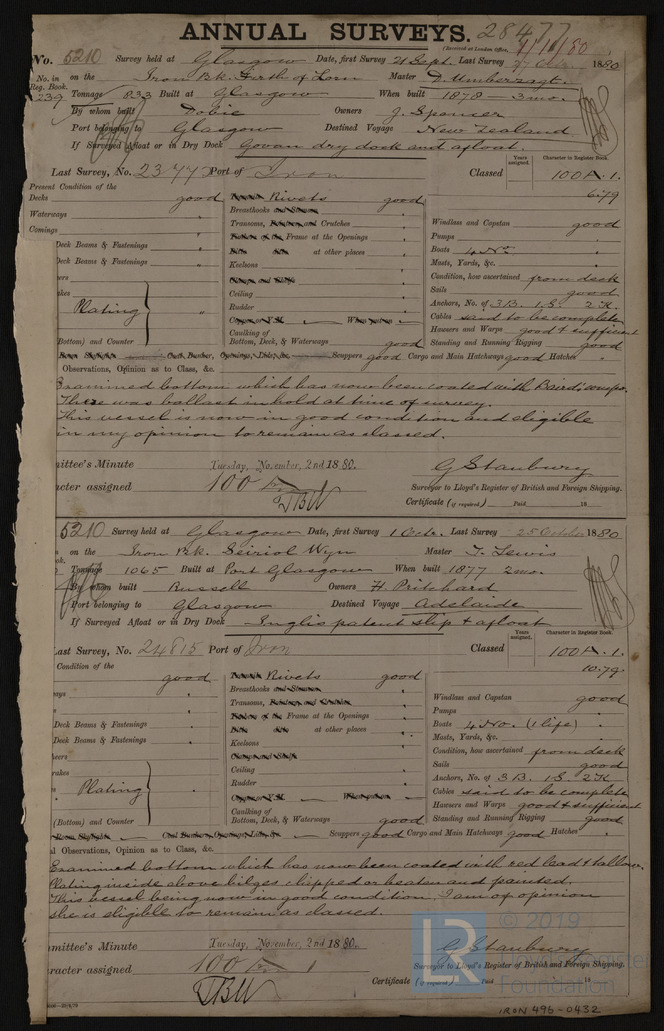 ANNUAL SURVEYS. 28477
(Received at London Office, 1/11/80
No. 5210 Survey held at Glasgow Date, first Survey 21 Sept. Last Survey 1880
No. in Reg. Book. on the Iron Bk. Firth of Lorn Master D. Umberzagt.
239 Tonnage 833 Built at Glasgow When built 1878 3mo.
By whom built Dobie Owners J. Spencer
Port belonging to Glasgow Destined Voyage New Zealand
If Surveyed Afloat or in Dry Dock Govan dry dock and afloat.
Last Survey, No. 23477 Port of Iron Classed Years assigned. Character in Register Book. 100A.1.
6.79
Present Condition of the
Decks good
Waterways "
Comings "
Deck Beams & Fastenings "
Deck Beams & Fastenings "
Plating "
Bottom) and Counter
Rivets good
Breasthooks
Transoms, and Crutches
Frame at the Openings
at other places
Keelsons
Ceiling
Rudder
Caulking of
Bottom, Deck, & Waterways good
Windlass and Capstan good
Pumps
Boats 4 No.
Masts, Yards, &c.
Condition, how ascertained from deck
Sails good
Anchors, No. of 3B. 1S. 2K.
Cables said to be complete
Hawsers and Warps good & sufficient
Standing and Running Rigging good
Scuppers good Cargo and Main Hatchways good Hatches
Observations, Opinion as to Class, &c.
Examined bottom which has now been coated with Baird's
There was ballast in hold at time of survey.
This vessel is now in good condition and eligible
in my opinion to remain as classed.
mittee's Minute Tuesday, November, 2nd 1880.
acter assigned 100
G Stanbury
Surveyor to Lloyd's Register of British and Foreign Shipping.
Certificate (if required) Paid 18
5210 Survey held at Glasgow Date, first Survey 1 Octr. Last Survey 25 October 1880
on the Iron Bk. Seiriol Wyn Master T. Lewis
Tonnage 1065 Built at Port Glasgow When built 1877 2mo.
By whom built Russell Owners H. Pritchard
Port belonging to Glasgow Destined Voyage Adelaide
If Surveyed Afloat or in Dry Dock Inglis patent slip & afloat
Last Survey, No. 24815 Port of Iron Classed Years assigned. Character in Register Book. 100A.1.
10.79.
Condition of the
good
Deck Beams & Fastenings
Deck Beams & Fastenings
Plating
(Bottom) and Counter
Rivets good
Breasthooks
Transoms,
Frame at the Openings
at other places
Keelsons
Ceiling
Rudder
Caulking of
Bottom, Deck, & Waterways good
Windlass and Capstan good
Pumps
Boats 4 No. (1 life)
Masts, Yards, &c.
Condition, how ascertained from deck
Sails good
Anchors, No. of 3B. 1S. 2K
Cables said to be complete
Hawsers and Warps good & sufficient
Standing and Running Rigging good
Scuppers good Cargo and Main Hatchways good Hatches
al Observations, Opinion as to Class, &c.
Examined bottom which has now been coated with red lead & tallow.
Plating inside above bilges chipped or beaten and painted.
This vessel being now in good condition I am of opinion
she is eligible to remain as classed.
mmittee's Minute Tuesday, November, 2nd 1880.
aracter assigned 100
G Stanbury
Surveyor to Lloyd's Register of British and Foreign Shipping.
Certificate (if required) Paid 18
LR © 2019
Foundation
IRON 496-0432